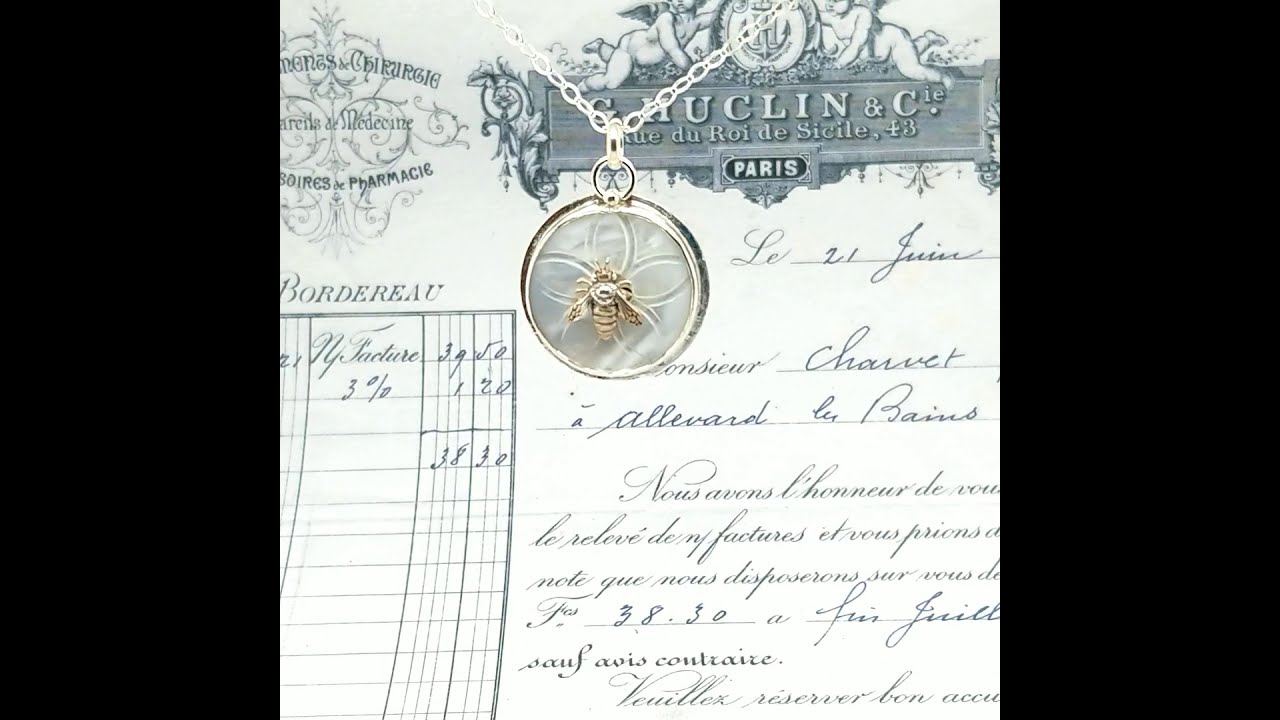 MENTS DE CHIRURGIE
areils de Médecine
SOIRES DE PHARMACIE
HUCLIN & Cie
Rue du Roi de Sicile, 43
PARIS
Le 21 Juin
BORDEREAU
N/ Facture 39 50
3% 1 20
38 30
onsieur Charvet
à Allevard les Bains
Nous avons l'honneur de vou
le relevé de n/ factures et vous prions d
note que nous disposerons sur vous de
Fcs 38.30 a fin Juill
sauf avis contraire.
Veuillez réserver bon accu